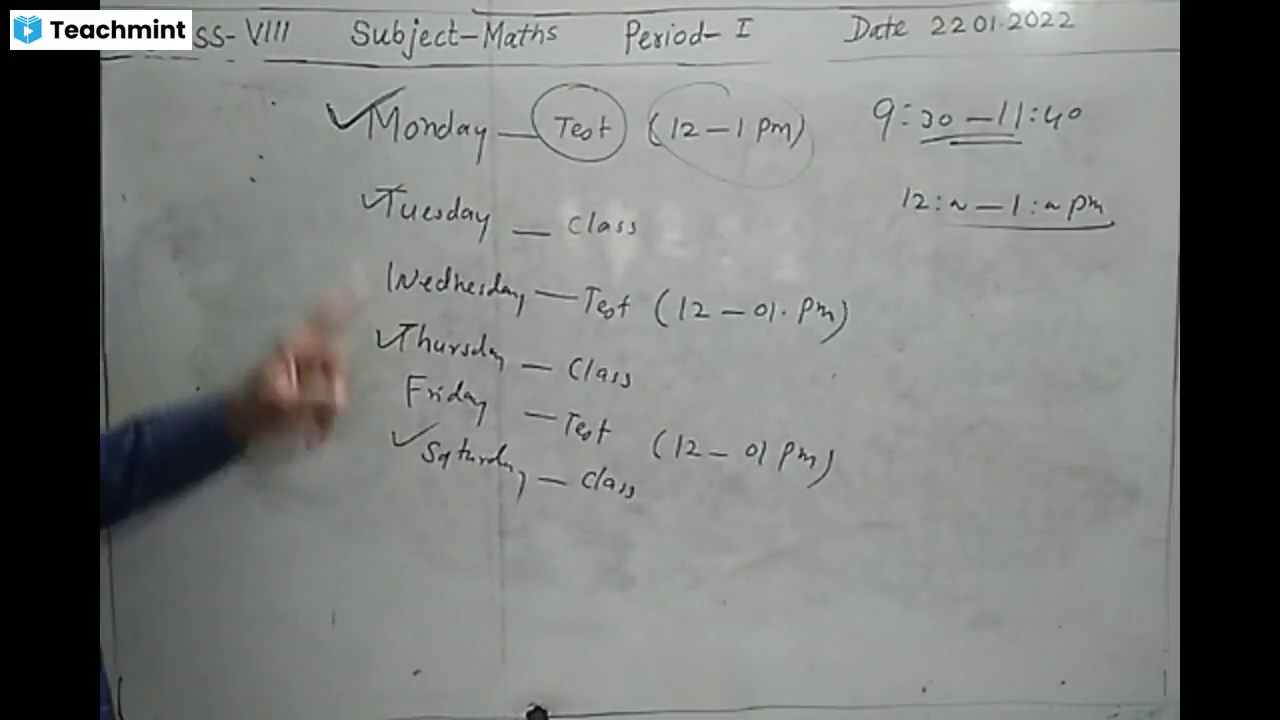 Teachmint
ss- VIII Subject-Maths Period- I Date 22 01.2022
Monday - Test (12-1 pm) 9:30-11:40
Tuesday - Class 12: - 1: pm
Wednesday - Test (12-01. pm)
Thursday - Class
Friday - Test (12-01 pm)
Saturday - Class